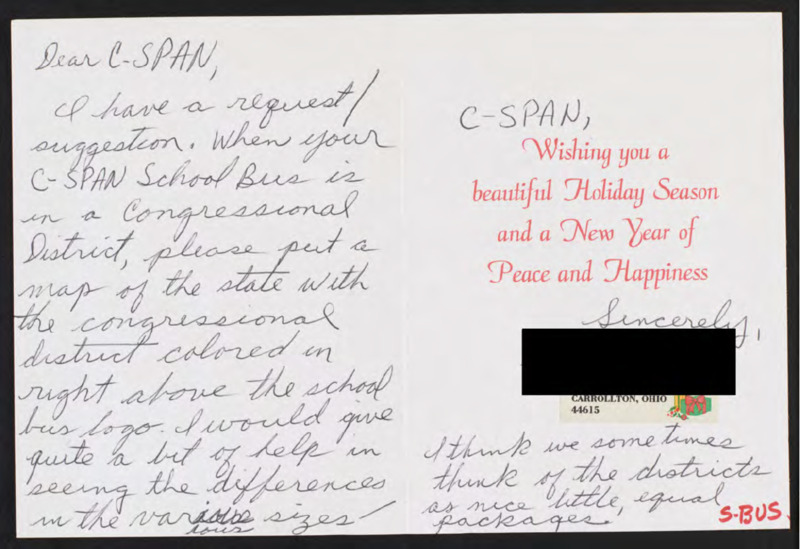 Dear C-SPAN,
I have a request/
suggestion. When your
C-SPAN School Bus is
in a Congressional
District, please put a
map of the state with
the congressional
district colored in
right above the school
bus logo. I would give
quite a bit of help in
seeing the differences
in the various sizes
ious
C-SPAN,
Wishing you a
beautiful Holiday Season
and a New Year of
Peace and Happiness
Sincerely,
CARROLLTON, OHIO
44615
I think we sometimes
think of the districts
as nice little, equal
packages.
S-BUS.